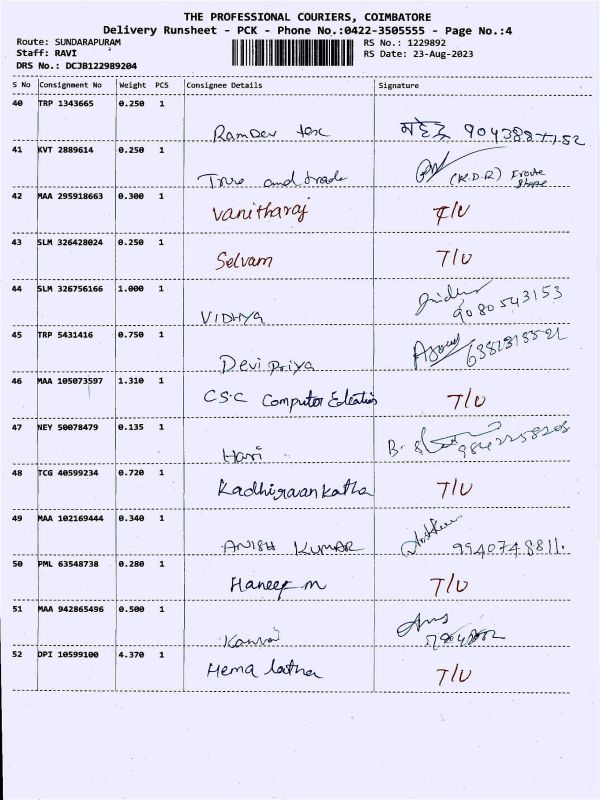 THE PROFESSIONAL COURIERS, COIMBATORE
Delivery Runsheet - PCK - Phone No.:0422-3505555 - Page No.:4
Route: SUNDARAPURAM RS No.: 1229892
Staff: RAVI RS Date: 23-Aug-2023
DRS No.: DCJB122989204
S No Consignment No Weight PCS Consignee Details Signature
40 TRP 1343665 0.250 1
Ramdev tex
41 KVT 2889614 0.250 1
True and trade (K.D.R)
42 MAA 295918663 0.300 1
Vanitharaj T/U
43 SLM 326428024 0.250 1
Selvam T/U
44 SLM 326756166 1.000 1
VIDHYA 9080543153
45 TRP 5431416 0.750 1
Devi Priya
46 MAA 105073597 1.310 1
C.S.C Computer Edcation T/U
47 NEY 50078479 0.135 1
Hari B.
48 TCG 40599234 0.720 1
T/U
49 MAA 102169444 0.340 1
ANISH KUMAR 9940748811.
50 PML 63548738 0.280 1
Haneef m T/U
51 MAA 942865496 0.500 1
52 DPI 10599100 4.370 1
Hema latha T/U